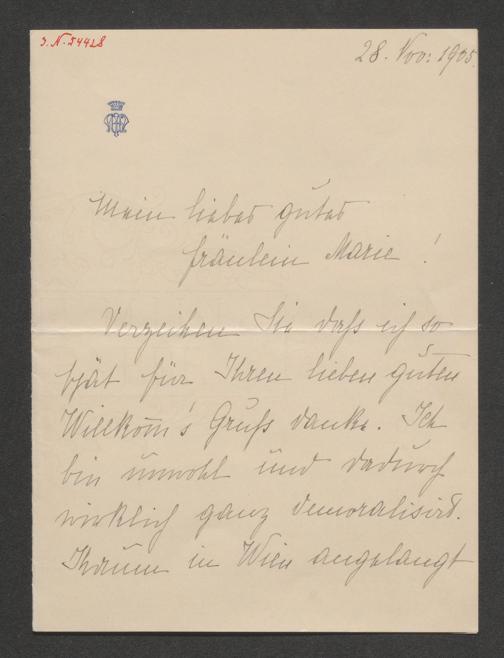 J.N. 54428
28. Nov: 1905.
Mein liebes gutes
Fräulein Marie!
Verzeihen Sie daß ich so
spät für Ihren lieben guten
Willkom̄'s Gruß danke. Ich
bin unwohl und dadurch
wirklich ganz demoralisirt.
Kaum in Wien angelangt